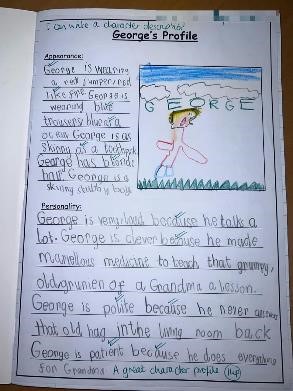 I can write a character description
George's Profile
Appearance:
George is wearing
a red jumper red
like fire George is
wearing blue
trousers blue as a
ocean George is as
skinny as a toothpick
George has blonde
hair George is a
skinny boy
GEORGE
Personality:
George is very loud because he talks a
lot. George is clever because he made
marvellous medicine to teach that grumpy,
old grunion of a Grandma a lesson.
George is polite because he never answers
that old hag in the living room back
George is patient because he does everything
for Grandma. A great character profile